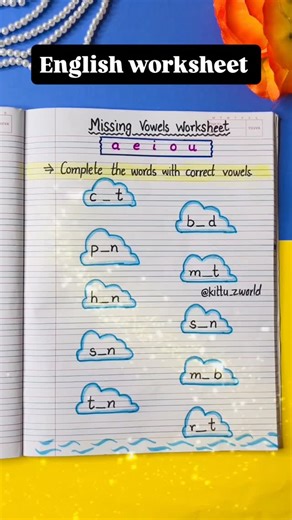 English worksheet
Missing Vowels Worksheet
a e i o u
⇒ Complete the words with correct vowels
c _ t
b _ d
p _ n
m _ t
@kittu_zworld
h _ n
s _ n
s _ n
m _ b
t _ n
r _ t